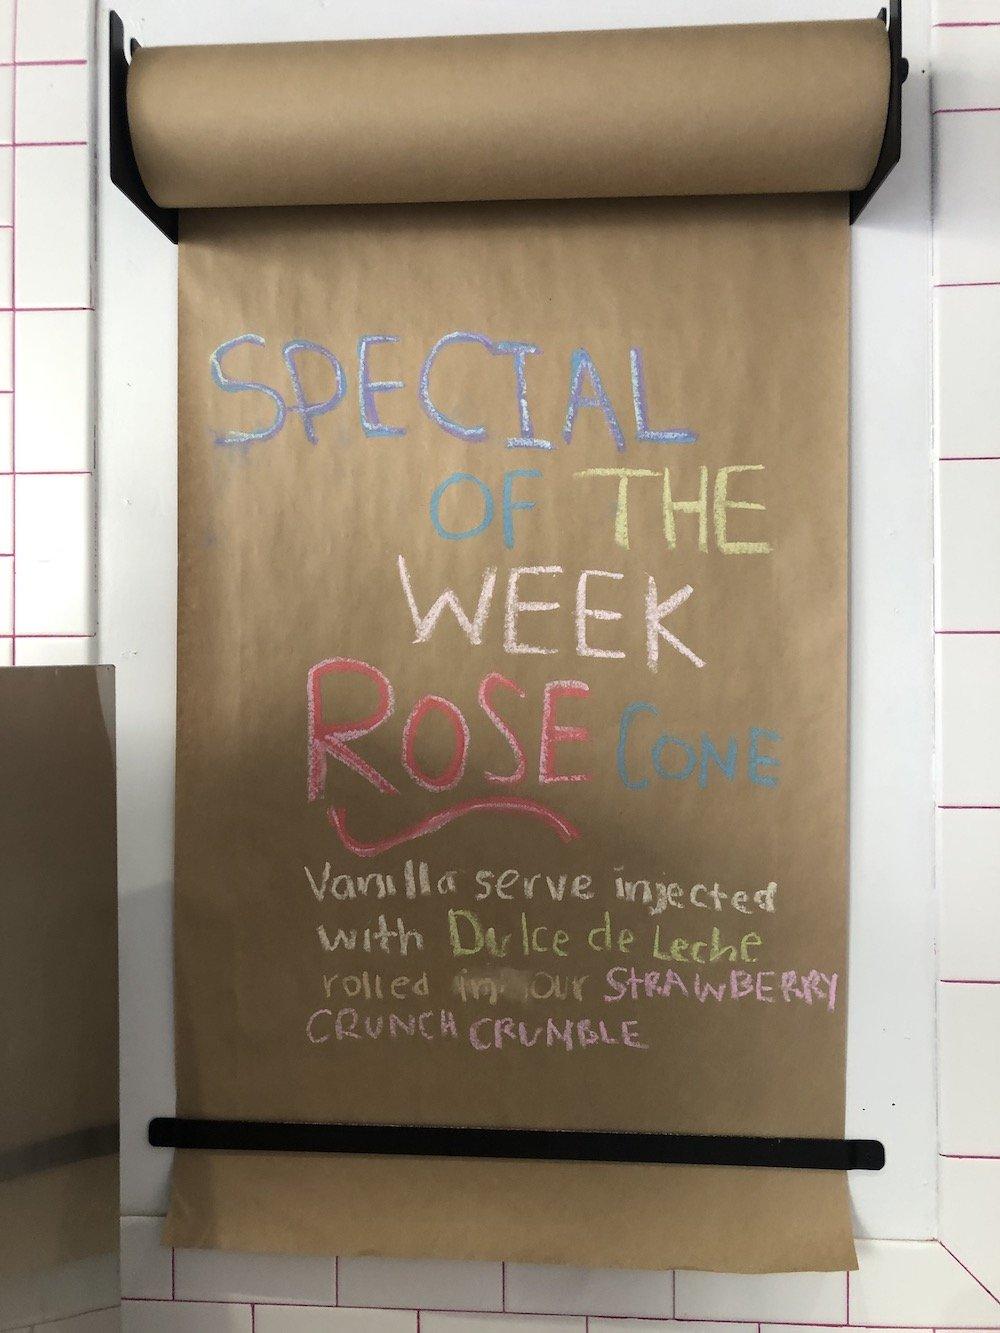 SPECIAL
OF THE
WEEK
ROSE CONE
Vanilla serve injected
with Dulce de Leche
rolled in our STRAWBERRY
CRUNCH CRUMBLE